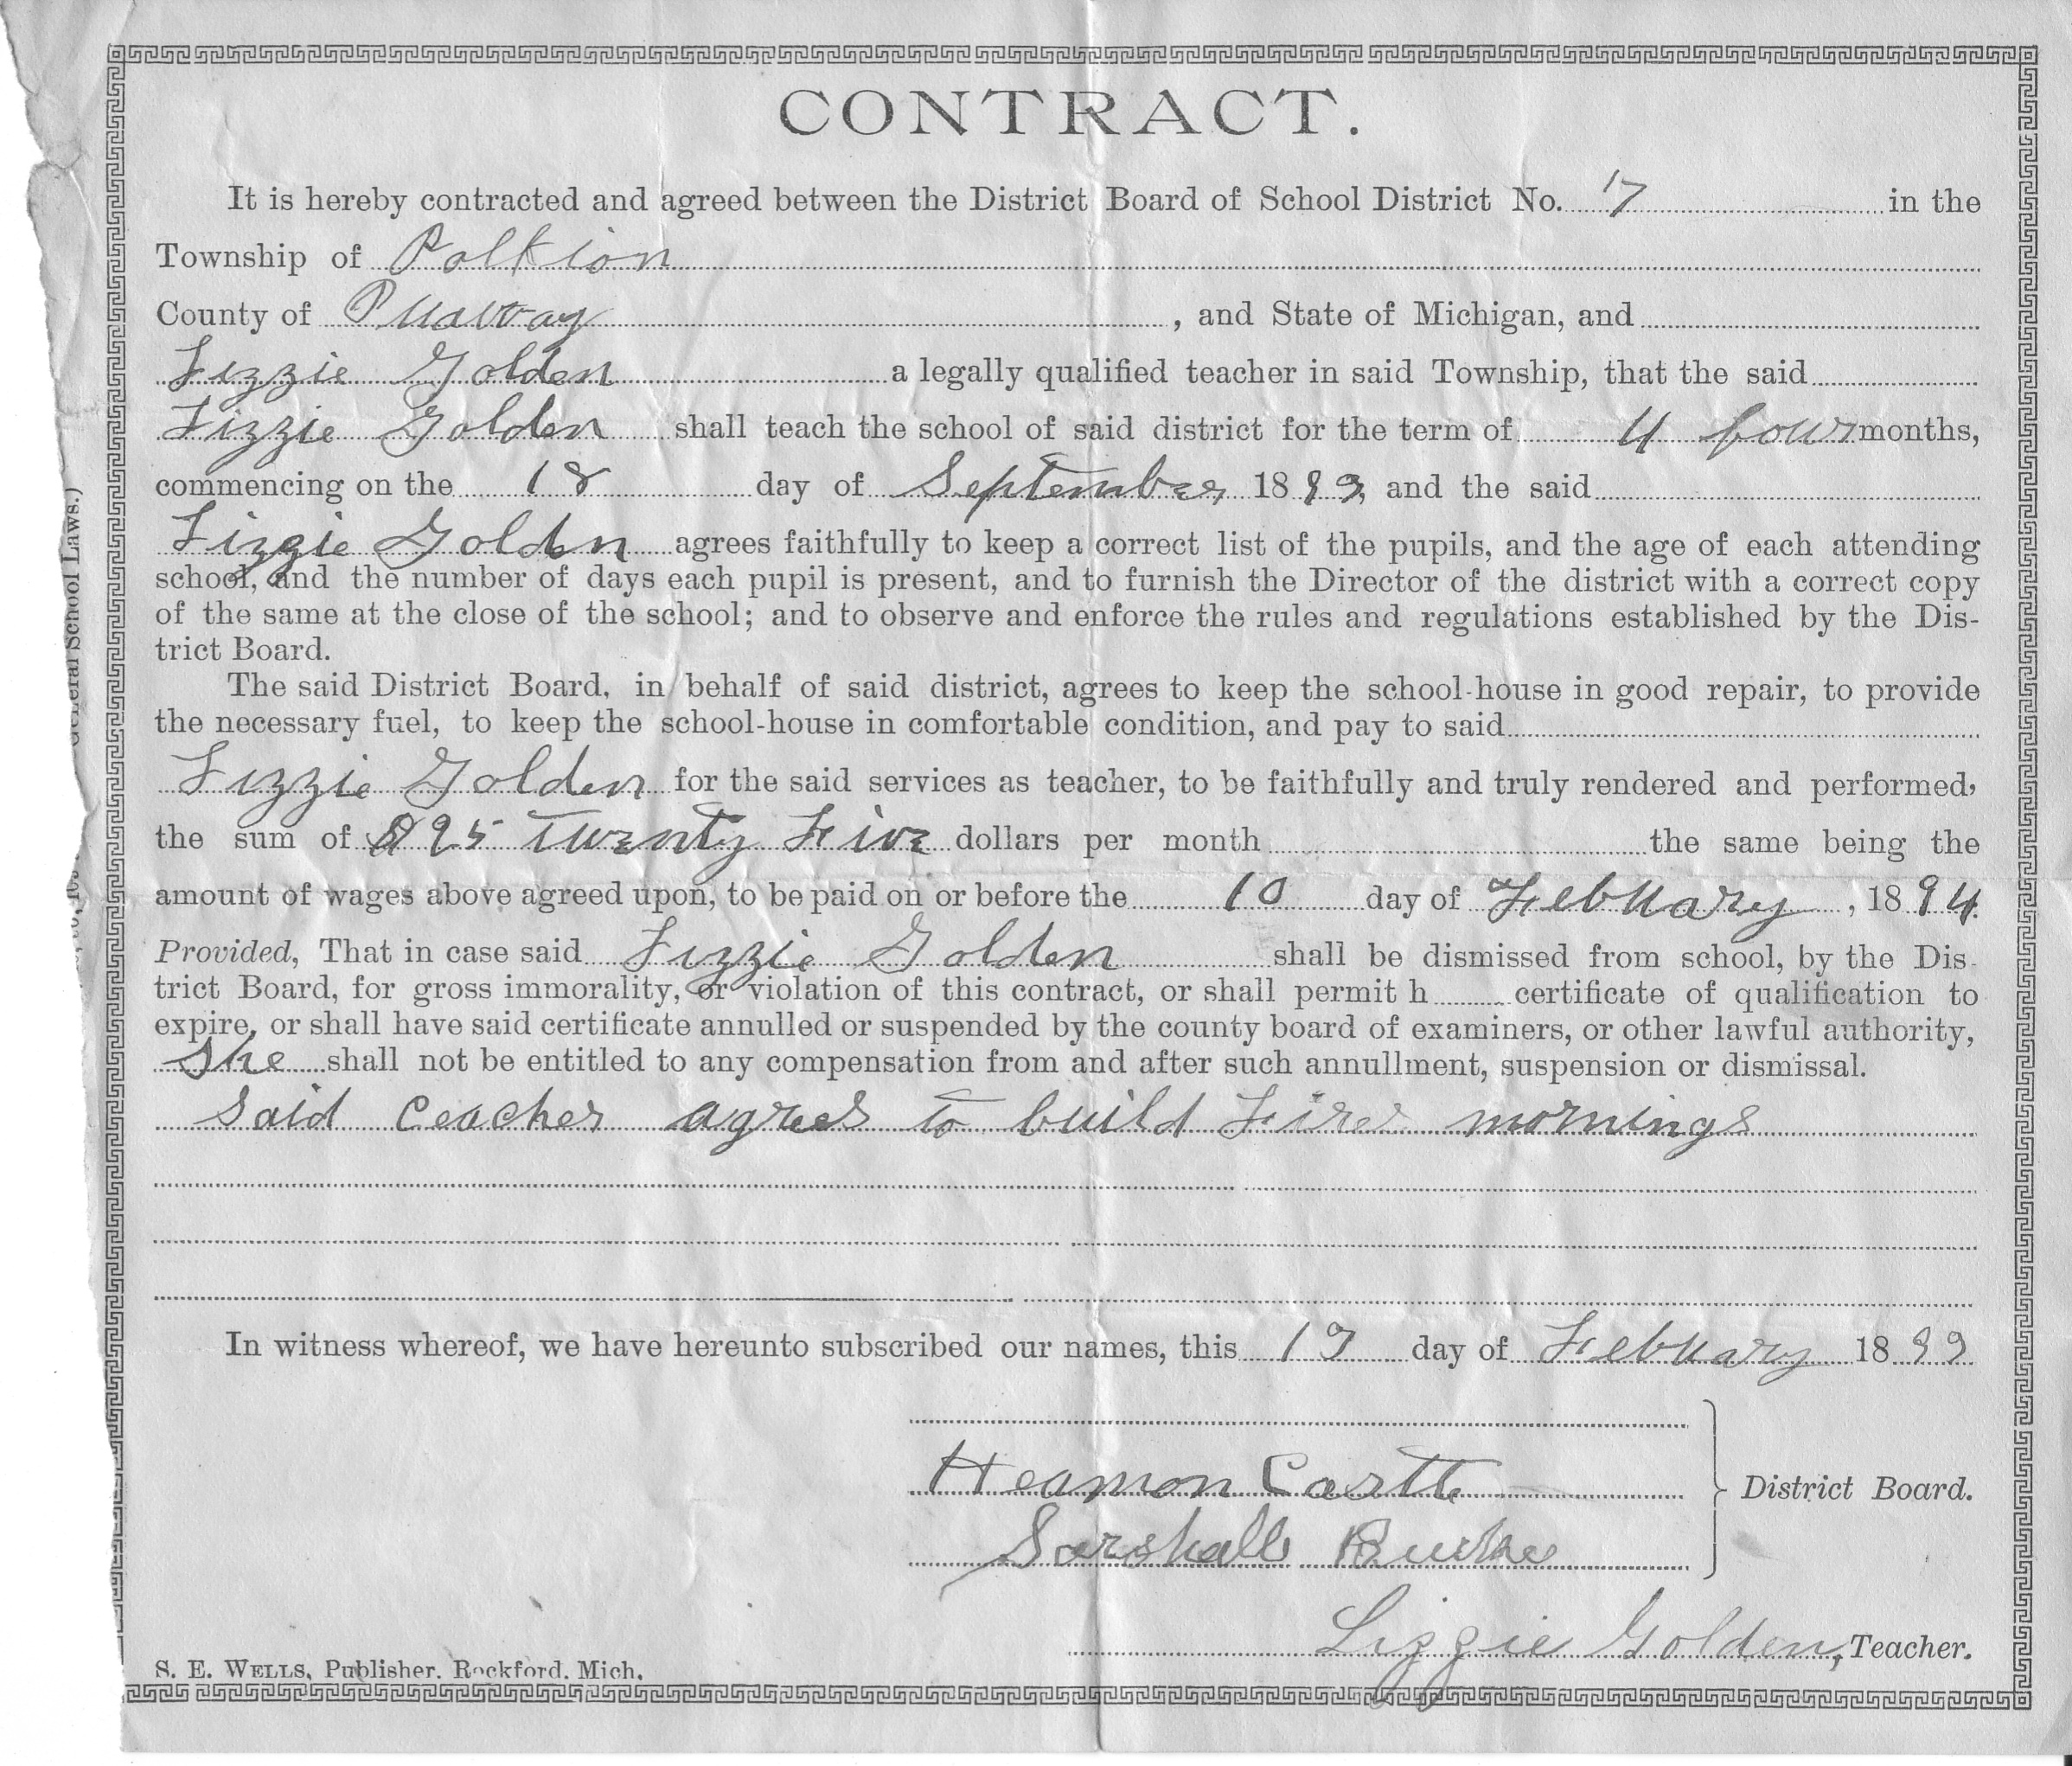 CONTRACT.
It is hereby contracted and agreed between the District Board of School District No. 17 in the
Township of Polktion
County of , and State of Michigan, and
Lizzie Golden a legally qualified teacher in said Township, that the said
Lizzie Golden shall teach the school of said district for the term of 4 four months,
commencing on the 18 day of September 1893, and the said
Lizzie Golden agrees faithfully to keep a correct list of the pupils, and the age of each attending
school, and the number of days each pupil is present, and to furnish the Director of the district with a correct copy
of the same at the close of the school; and to observe and enforce the rules and regulations established by the Dis-
trict Board.
The said District Board, in behalf of said district, agrees to keep the school-house in good repair, to provide
the necessary fuel, to keep the school-house in comfortable condition, and pay to said
Lizzie Golden for the said services as teacher, to be faithfully and truly rendered and performed,
the sum of Twenty Five dollars per month the same being the
amount of wages above agreed upon, to be paid on or before the 10 day of Febuary, 1894
Provided, That in case said Lizzie Golden shall be dismissed from school, by the Dis-
trict Board, for gross immorality, or violation of this contract, or shall permit h certificate of qualification to
expire, or shall have said certificate annulled or suspended by the county board of examiners, or other lawful authority,
She shall not be entitled to any compensation from and after such annullment, suspension or dismissal.
Said teacher agrees to build Fires mornings
In witness whereof, we have hereunto subscribed our names, this day of Febuary 18
Heamon
District Board.
Lizzie Golden, Teacher.
S. E. WELLS, Publisher, Rockford, Mich.
General School Laws.)